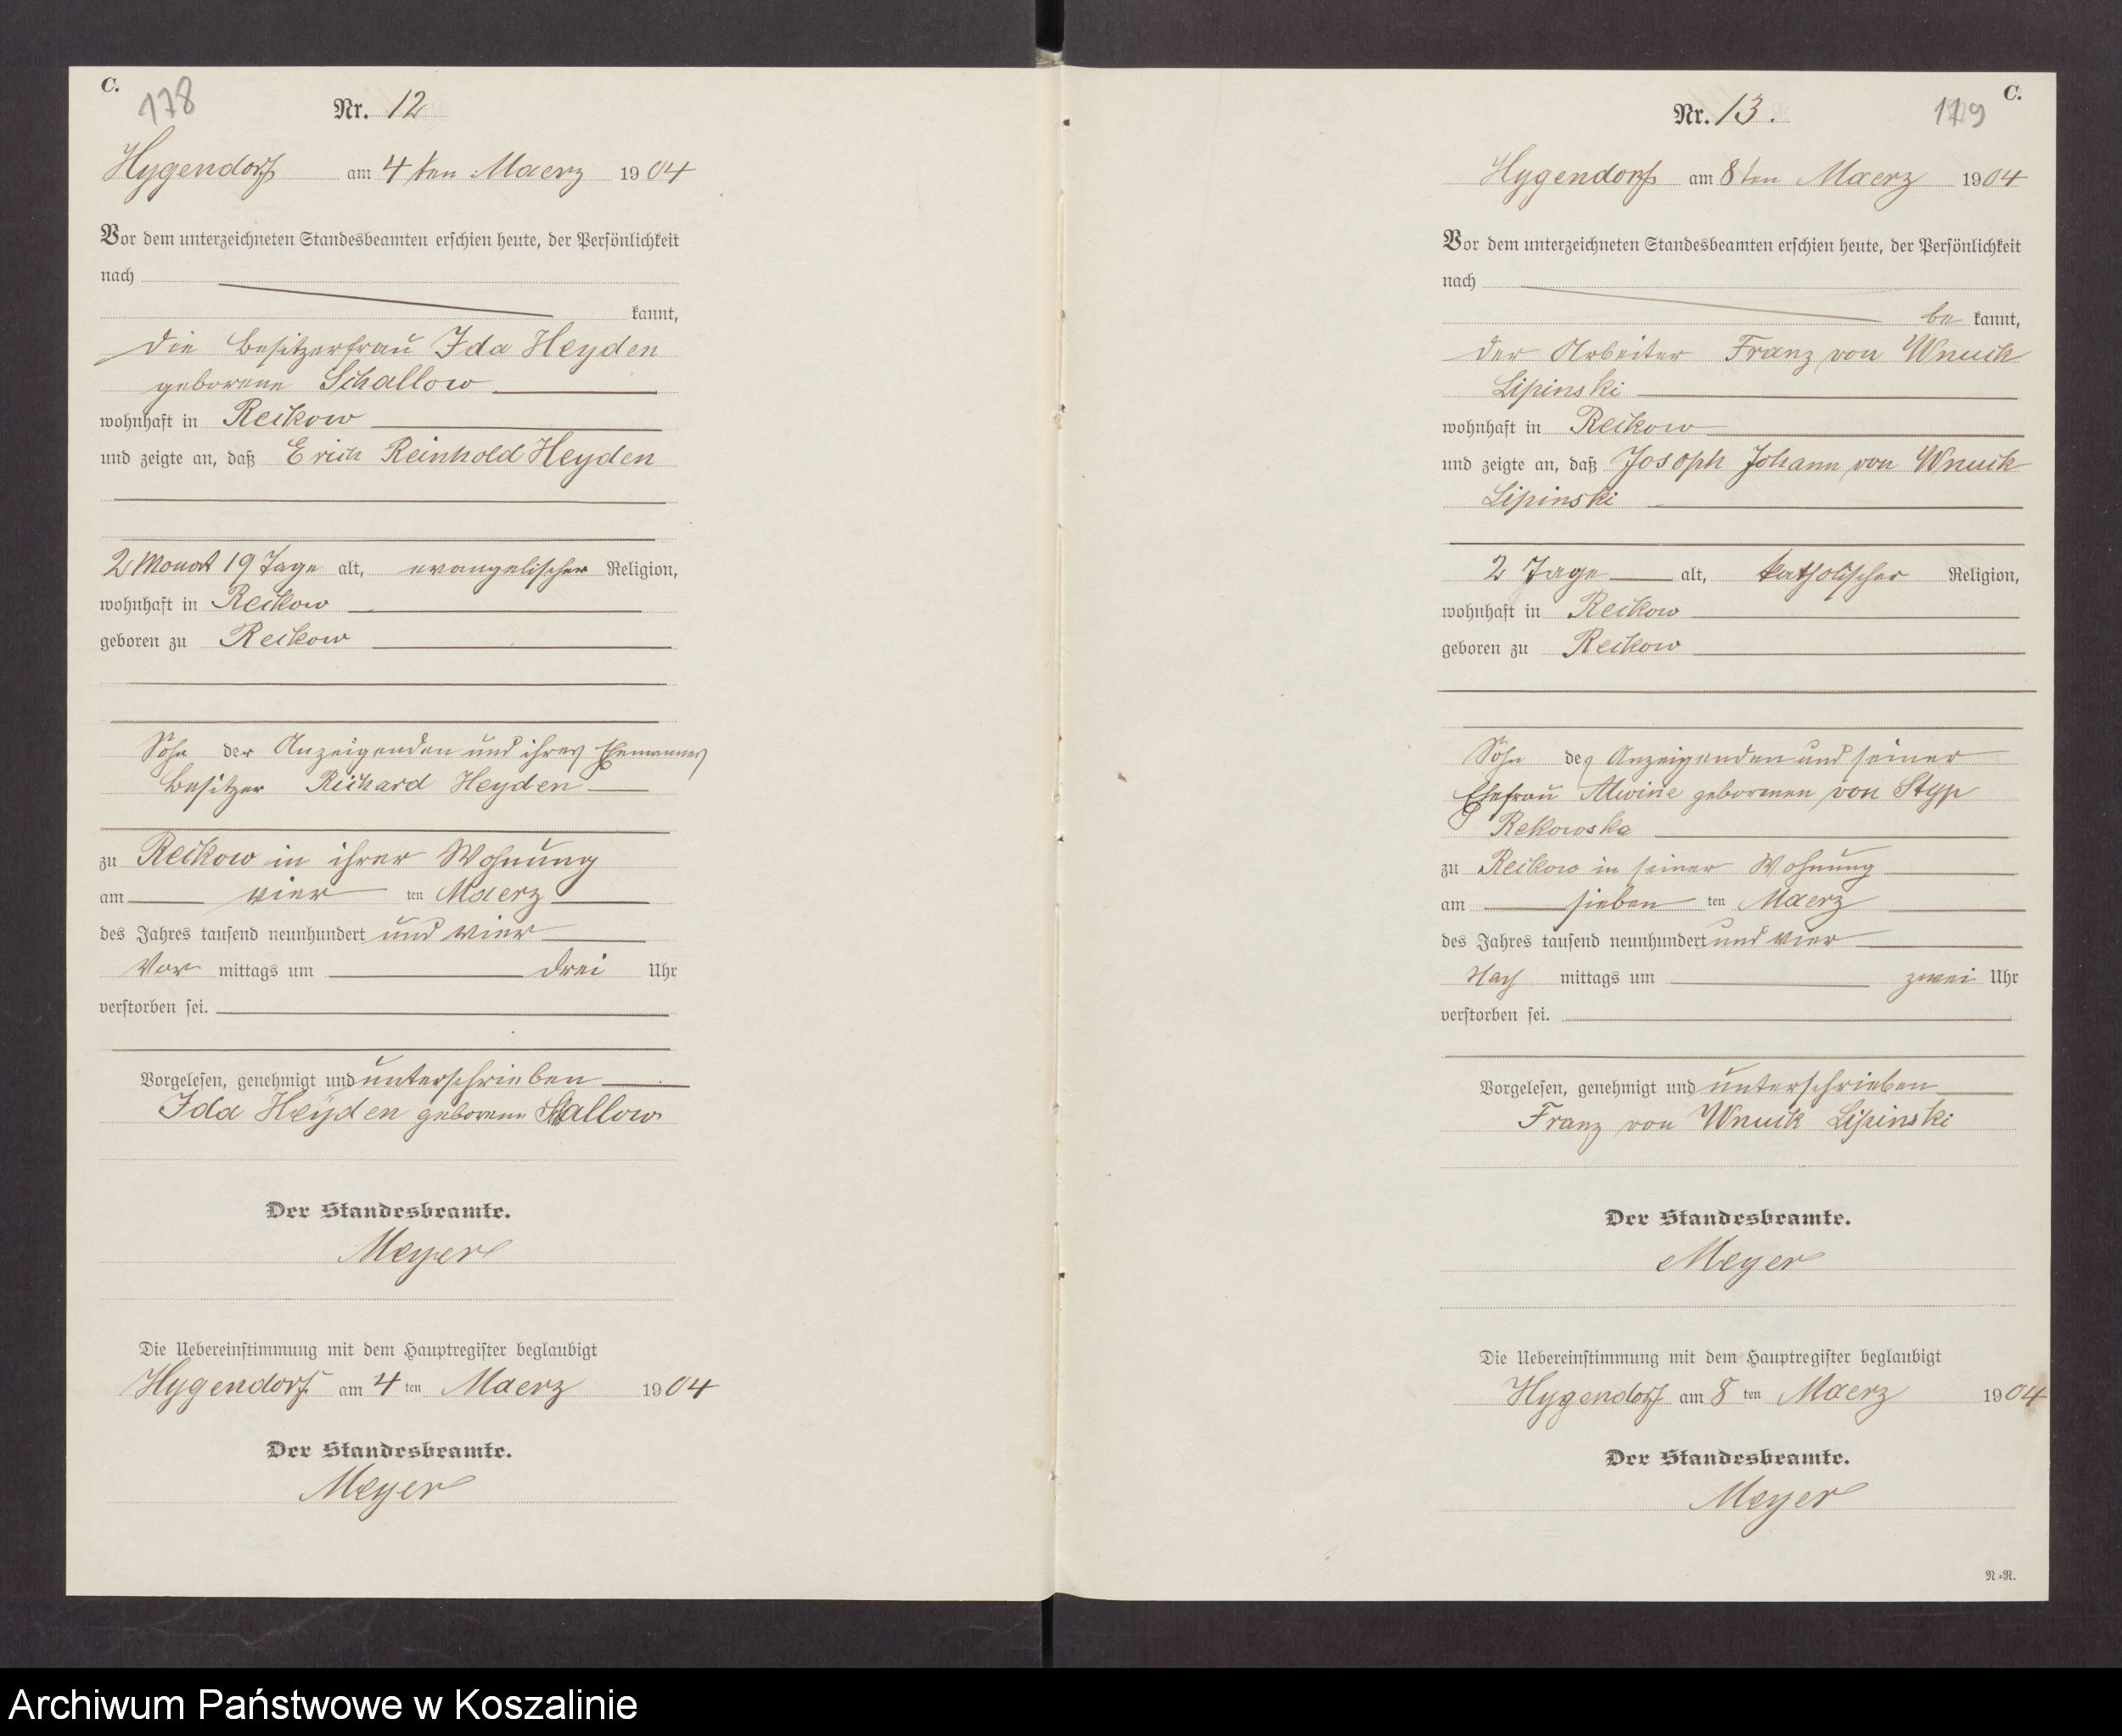 C.
178
Nr. 12
Hygendorf am 4ten Maerz 1904
Vor dem unterzeichneten Standesbeamten erschien heute, der Persönlichkeit
nach
kannt,
die Besitzerfrau Ida Heyden
geborene Schallow
wohnhaft in Reckow
und zeigte an, daß Erich Reinhold Heyden
2 Monat 19 Tage alt, evangelischer Religion,
wohnhaft in Reckow
geboren zu Reckow
Sohn der Anzeigenden und ihres Ehemannes
Besitzer Richard Heyden
zu Reckow in ihrer Wohnung
am vier ten Maerz
des Jahres tausend neunhundert und vier
Vor mittags um drei Uhr
verstorben sei.
Vorgelesen, genehmigt und unterschrieben
Ida Heyden geborene Schallow
Der Standesbeamte.
Meyer
Die Uebereinstimmung mit dem Hauptregister beglaubigt
Hygendorf am 4 ten Maerz 1904
Der Standesbeamte.
Meyer
C.
179
Nr. 13.
Hygendorf am 8ten Maerz 1904
Vor dem unterzeichneten Standesbeamten erschien heute, der Persönlichkeit
nach
be kannt,
der Arbeiter Franz von Wnuck
Lipinski
wohnhaft in Reckow
und zeigte an, daß Josoph Johann von Wnuck
Lipinski
2 Tage alt, katholischer Religion,
wohnhaft in Reckow
geboren zu Reckow
Sohn des Anzeigenden und seiner
Ehefrau Alwine geborenen von Styp
Rekowska
zu Reckow in seiner Wohnung
am sieben ten Maerz
des Jahres tausend neunhundert und vier
Nach mittags um zwei Uhr
verstorben sei.
Vorgelesen, genehmigt und unterschrieben
Franz von Wnuck Lipinski
Der Standesbeamte.
Meyer
Die Uebereinstimmung mit dem Hauptregister beglaubigt
Hygendorf am 8 ten Maerz 1904
Der Standesbeamte.
Meyer
N=R.
Archiwum Państwowe w Koszalinie